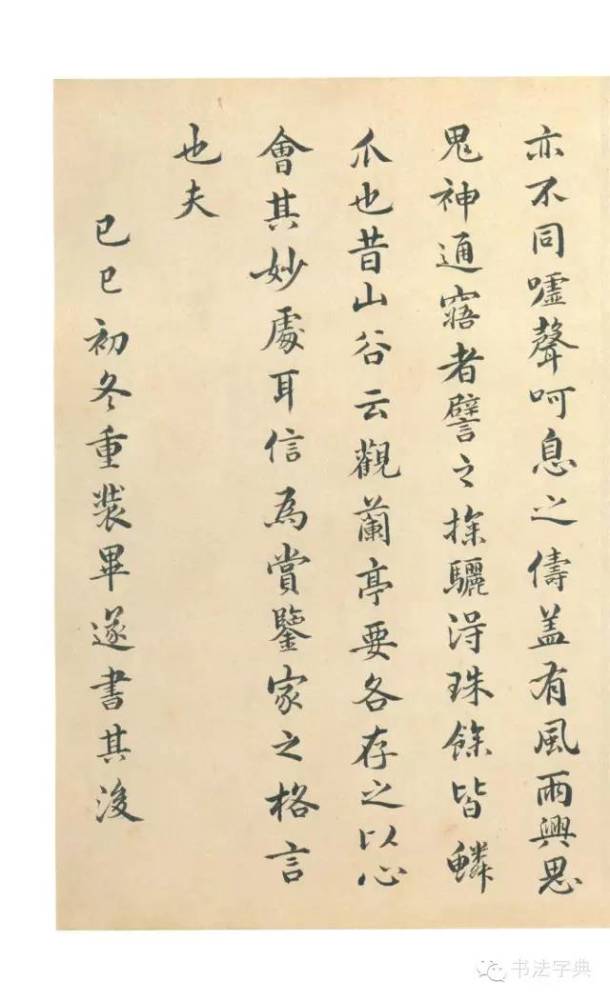 亦不同嘘聲呵息之儔盖有風雨興思
鬼神通寤者譬之探驪得珠餘皆鱗
爪也昔山谷云觀蘭亭要各存之以心
會其妙處耳信為賞鑒家之格言
也夫
己巳初冬重裝畢遂書其後
书法字典